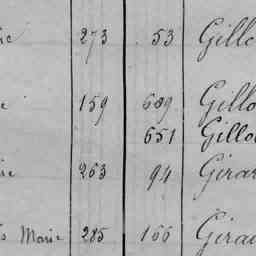 273 53 Gillo
159 609 Gillo
651 Gillo
263 94 Girar
Marie 285 166 Girau